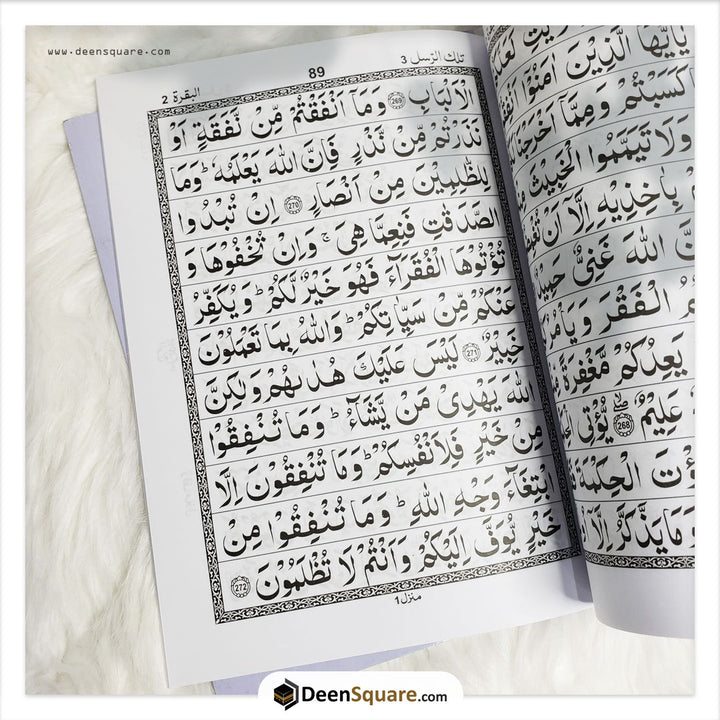 www.deensquare.com
تلك الرسل 3
89
البقرة 2
الْاَلْبَابِ 269 وَمَآ اَنْفَقْتُمْ مِّنْ نَّفَقَةٍ اَوْ
نَذَرْتُمْ مِّنْ نَّذْرٍ فَاِنَّ اللهَ يَعْلَمُهٗ ؕ وَمَا
لِلظّٰلِمِيْنَ مِنْ اَنْصَارٍ 270 اِنْ تُبْدُوا
الصَّدَقٰتِ فَنِعِمَّا هِيَ ۚ وَاِنْ تُخْفُوْهَا وَ
تُؤْتُوْهَا الْفُقَرَآءَ فَهُوَ خَيْرٌ لَّكُمْ ؕ وَيُكَفِّرُ
عَنْكُمْ مِّنْ سَيِّاٰتِكُمْ ؕ وَاللهُ بِمَا تَعْمَلُوْنَ
خَبِيْرٌ 271 لَيْسَ عَلَيْكَ هُدٰىهُمْ وَلٰكِنَّ
اللهَ يَهْدِيْ مَنْ يَّشَآءُ ؕ وَمَا تُنْفِقُوْا
مِنْ خَيْرٍ فَلِاَنْفُسِكُمْ ؕ وَمَا تُنْفِقُوْنَ اِلَّا
ابْتِغَآءَ وَجْهِ اللهِ ؕ وَمَا تُنْفِقُوْا مِنْ
خَيْرٍ يُّوَفَّ اِلَيْكُمْ وَاَنْتُمْ لَا تُظْلَمُوْنَ 272
منزل 1
يٰٓاَيُّهَا الَّذِيْنَ اٰمَنُوْٓا
كَسَبْتُمْ وَمِمَّآ
وَلَا تَيَمَّمُوا الْخَبِيْثَ
بِاٰخِذِيْهِ اِلَّآ اَنْ
اللهَ غَنِيٌّ حَمِيْدٌ
الْفَقْرَ
يَعِدُكُمْ مَّغْفِرَةً
عَلِيْمٌ 268 يُؤْتِي
الْحِكْمَةَ
وَمَا يَذَّكَّرُ اِلَّآ
DeenSquare.com